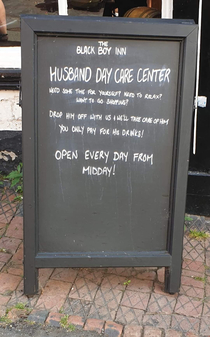 THE
BLACK BOY INN
HUSBAND DAY CARE CENTER
NEED SOME TIME FOR YOURSELF? NEED TO RELAX?
WANT TO GO SHOPPING?
DROP HIM OFF WITH US & WE'LL TAKE CARE OF HIM
YOU ONLY PAY FOR HIS DRINKS!
OPEN EVERY DAY FROM
MIDDAY!